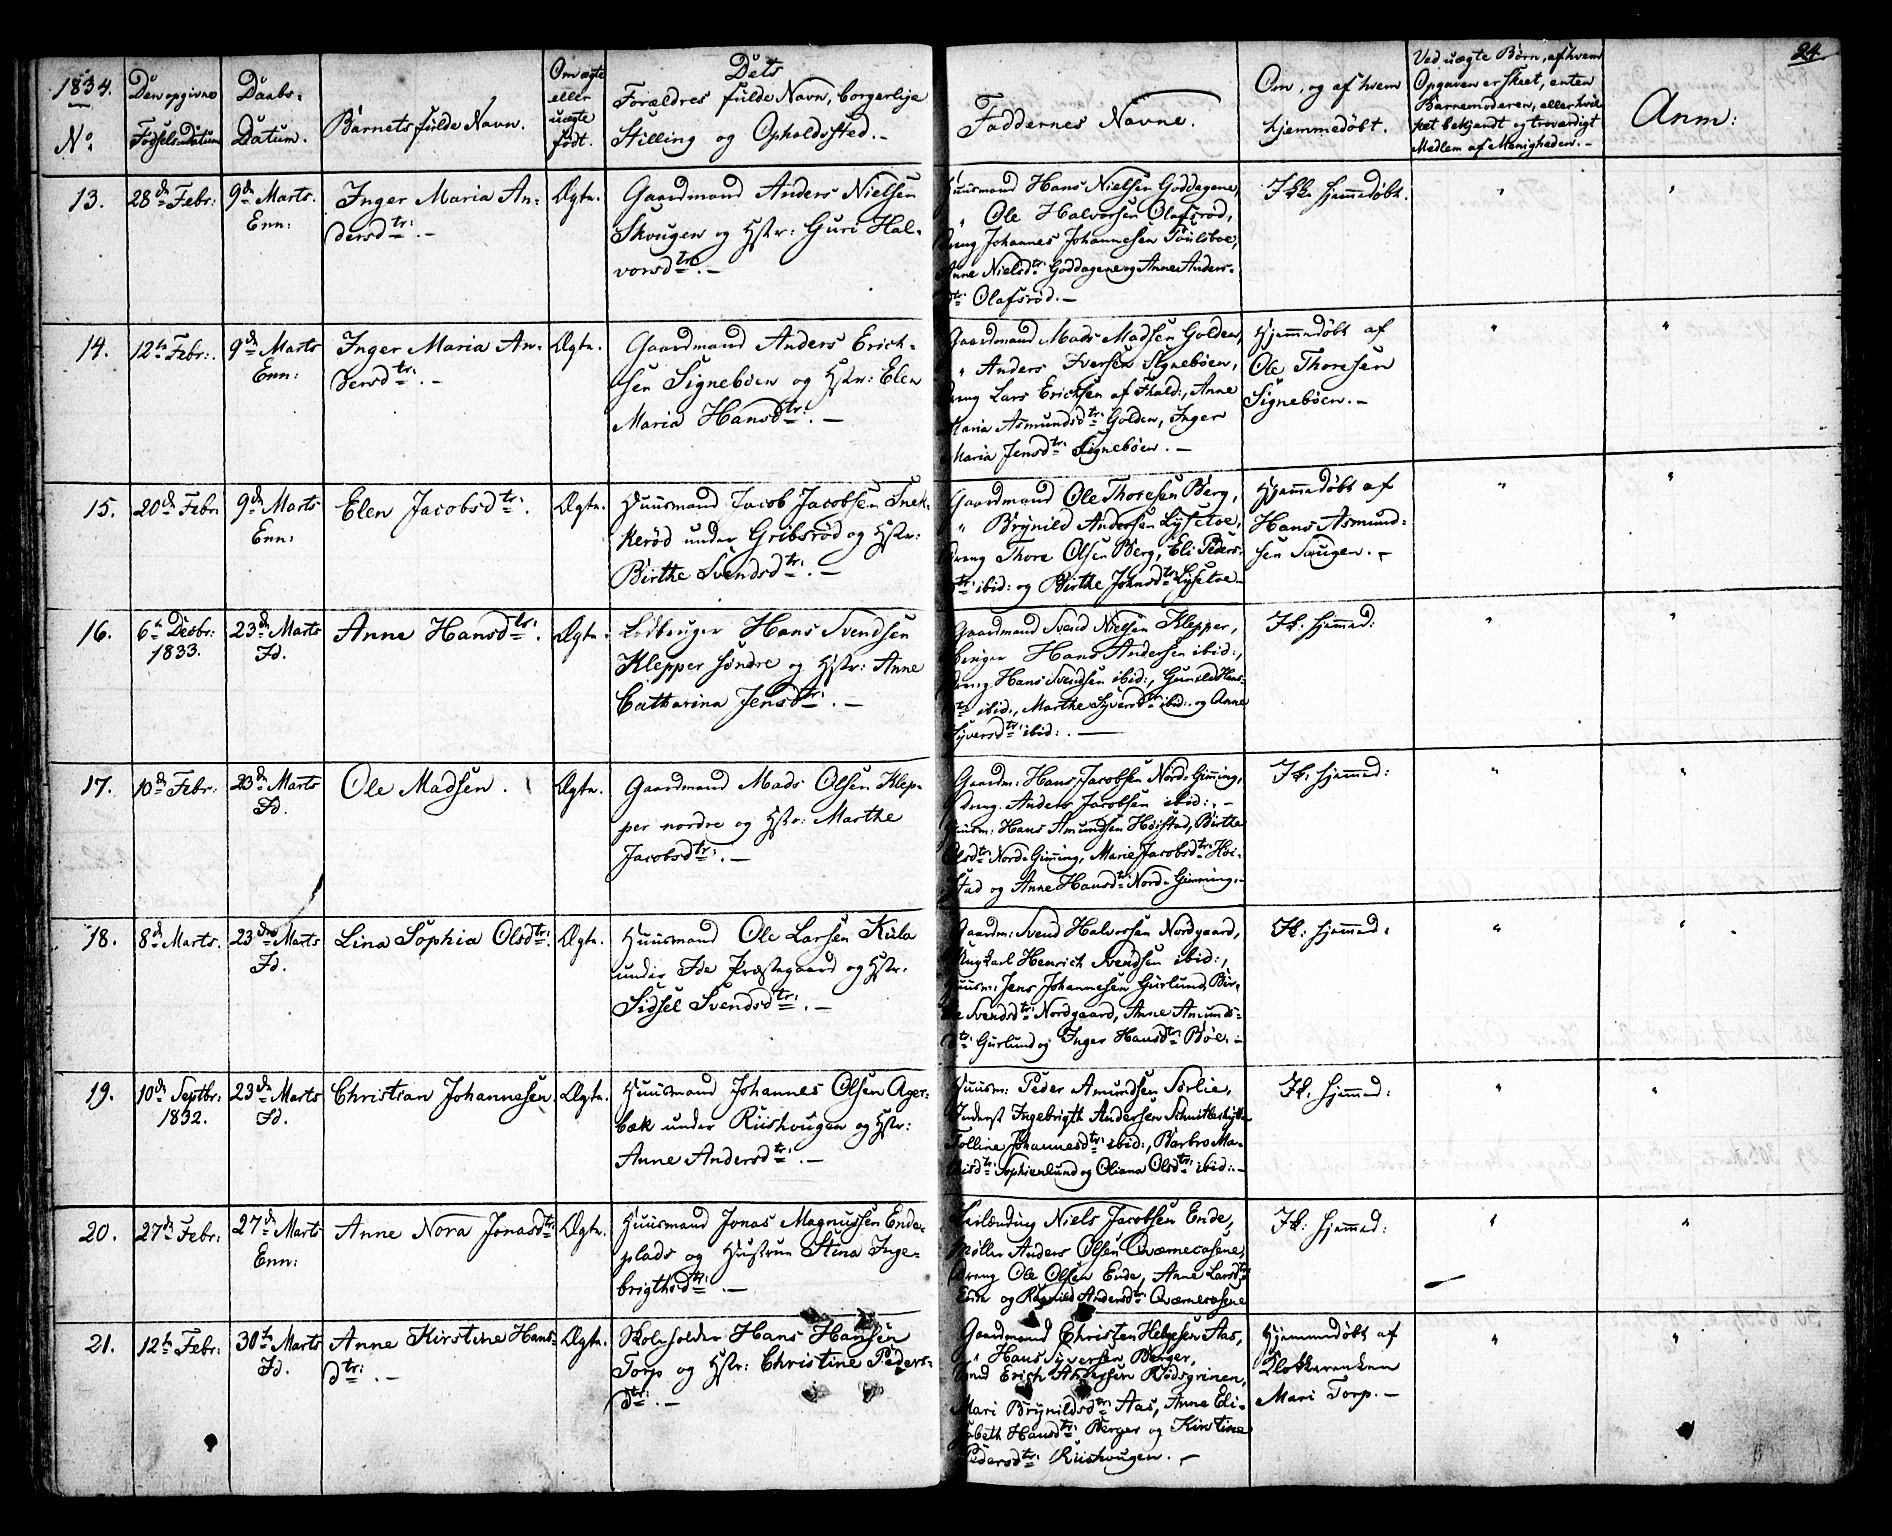 24.
1834.
No.
Den opgivne
Fødsels-Datum
Daabs-
Datum.
Barnets fulde Navn.
Om ægte
eller
uægte
født.
Dets
Forældres fulde Navn, borgerlige
Stilling og Opholdssted.-
Faddernes Navne.
Om, og af hvem
hjemmedøbt.
Ved uægte Børn, af hvem
Opgaven er skeet, enten
Barnemoderen, eller hvil
ket bekjendt og troværdigt
Medlem af Menigheden.-
Anm:
13.
28de Febr:
9de Marts.
Enn:
Inger Maria An-
dersdtr:.-
Ægte.
Gaardmand Anders Nielsen
Skougen og Hstr: Guri Hal-
vorsdtr:.-
Huusmand Hans Nielsen Goddagene,
" Ole Halvorsen Olafsrød,
Dreng Johannes Johannesen
Anne Nielsdtr: Goddagene og Anne Anders-
dtr: Olafsrød.-
Ikke hjemmedøbt.
"
"
14.
12te Febr:.
9de Marts
Enn:
Inger Maria An-
dersdtr:.-
Ægte.
Gaardmand Anders Erich-
sen Signebøen og Hstr: Elen
Maria Hansdtr:.-
Gaardmand Mads Madsen Golden,
" Anders Iversen Signebøen,
Dreng Lars Erichsen af Fhald:, Anne
Maria Asmundsdtr: Golden, Inger
Maria Jensdtr: Signebøen.-
Hjemmedøbt af
Ole Thoresen
Signebøen.-
"
"
15.
20de Febr:
9de Marts
Enn:
Elen Jacobsdtr:.
Ægte.
Huusmand Jacob Jacobsen Snek-
kerød under Gribsrød og Hstr:
Birthe Svendsdtr:.-
Gaardmand Ole Thoresen Berg,
" Brynild Andersen Lysetoe,
Dreng Thore Olsen Berg, Eli Peders-
dtr: ibid: og Birthe Johnsdtr: Lysetoe-
Hjemmedøbt af
Hans Asmund-
sen Saugen.-
"
"
16.
6te Decbr:
1833.
23de Marts
Id.
Anne Hansdtr:.
Ægte.
Lodbruger Hans Svendsen
Klepper søndre og Hstr: Anne
Catharina Jensdtr:.-
Gaardmand Svend Nielsen Klepper,
Hans Andersen ibid:,
Dreng Hans Svendsen ibid:, Gunild Hans-
dtr: ibid:, Marthe Syversdtr: ibid: og Anne
Syversdtr: ibid:.-
Ik: hjemmed:
"
"
17.
10de Febr:
23de Marts
Id.
Ole Madsen.
Ægte.
Gaardmand Mads Olsen Klep-
per nordre og Hstr: Marthe
Jacobsdtr:.-
Gaardm: Hans Jacobsen Nord-Gimming,
Dreng Anders Jacobsen ibid:.-
Huusm: Hans Amundsen Høistad, Birthe
Olsdtr: Nord-Gimming, Marie Jacobsdtr: Høi-
stad og Anne Hansdtr: Nord-Gimming.-
Ik: hjemmed:
"
"
18.
8de Marts.
23de Marts
Id.
Lina Sophia Olsdtr:.
Ægte.
Huusmand Ole Larsen Kula
under Ide Præstegaard og Hstr:
Sidsel Svendsdtr:.-
Gaardm: Svend Halvorsen Nordgaard,
Ungkarl Henrich Svendsen ibid:,
Huusm: Jens Johannesen Gurlund, Bir-
the Svendsdtr: Nordgaard, Anne Amunds-
dtr: Gurlund og Inger Hansdtr: Bøe.-
Ik: hjemmed:
"
"
19.
10de Septbr:
1832.
23de Marts
Id.
Christian Johannesen.
Ægte.
Huusmand Johannes Olsen Ager-
bæk under Riishougen og Hstr:
Anne Andersdtr:.-
Huusm: Peder Amundsen Sørlie,
Inderst Ingebrigth Andersen
Tolline Johannesdtr: ibid:, Barbro Ma-
Sophienlund og Oliana Olsdtr: ibid:-
Ik: hjemmed:
"
"
20.
27de Febr:
27de Marts
Enn:
Anne Nora Jonasdtr:
Ægte.
Huusmand Jonas Magnussen Ende-
plads og Hustrue Stina Inge-
brigthsdtr:.-
Niels Jacobsen Ende,
Møller Anders Olsen Qværnecasene,
Dreng Ole Olsen Ende, Anne Larsdtr:
Ende og Ragnild Andersdtr: Qværnecasene
Ik: hjemmed:
"
"
21.
12te Febr:
30te Marts
Id.
Anne Kirstine Hans-
dtr:.-
Ægte.
Skoleholder Hans Hansen
Torp og Hstr: Christine Peders-
dtr:.-
Gaardmand Christen Helgesen Aas,
" Hans Syversen Berger,
Erich Rødsgrinen,
Mari Brynildsdtr: Aas, Anne Eli-
sabeth Hansdtr: Berger og Kirstine
Pedersdtr: Riishougen.-
Hjemmedøbt af
Klokkerenken
Mari Torp.-
"
"